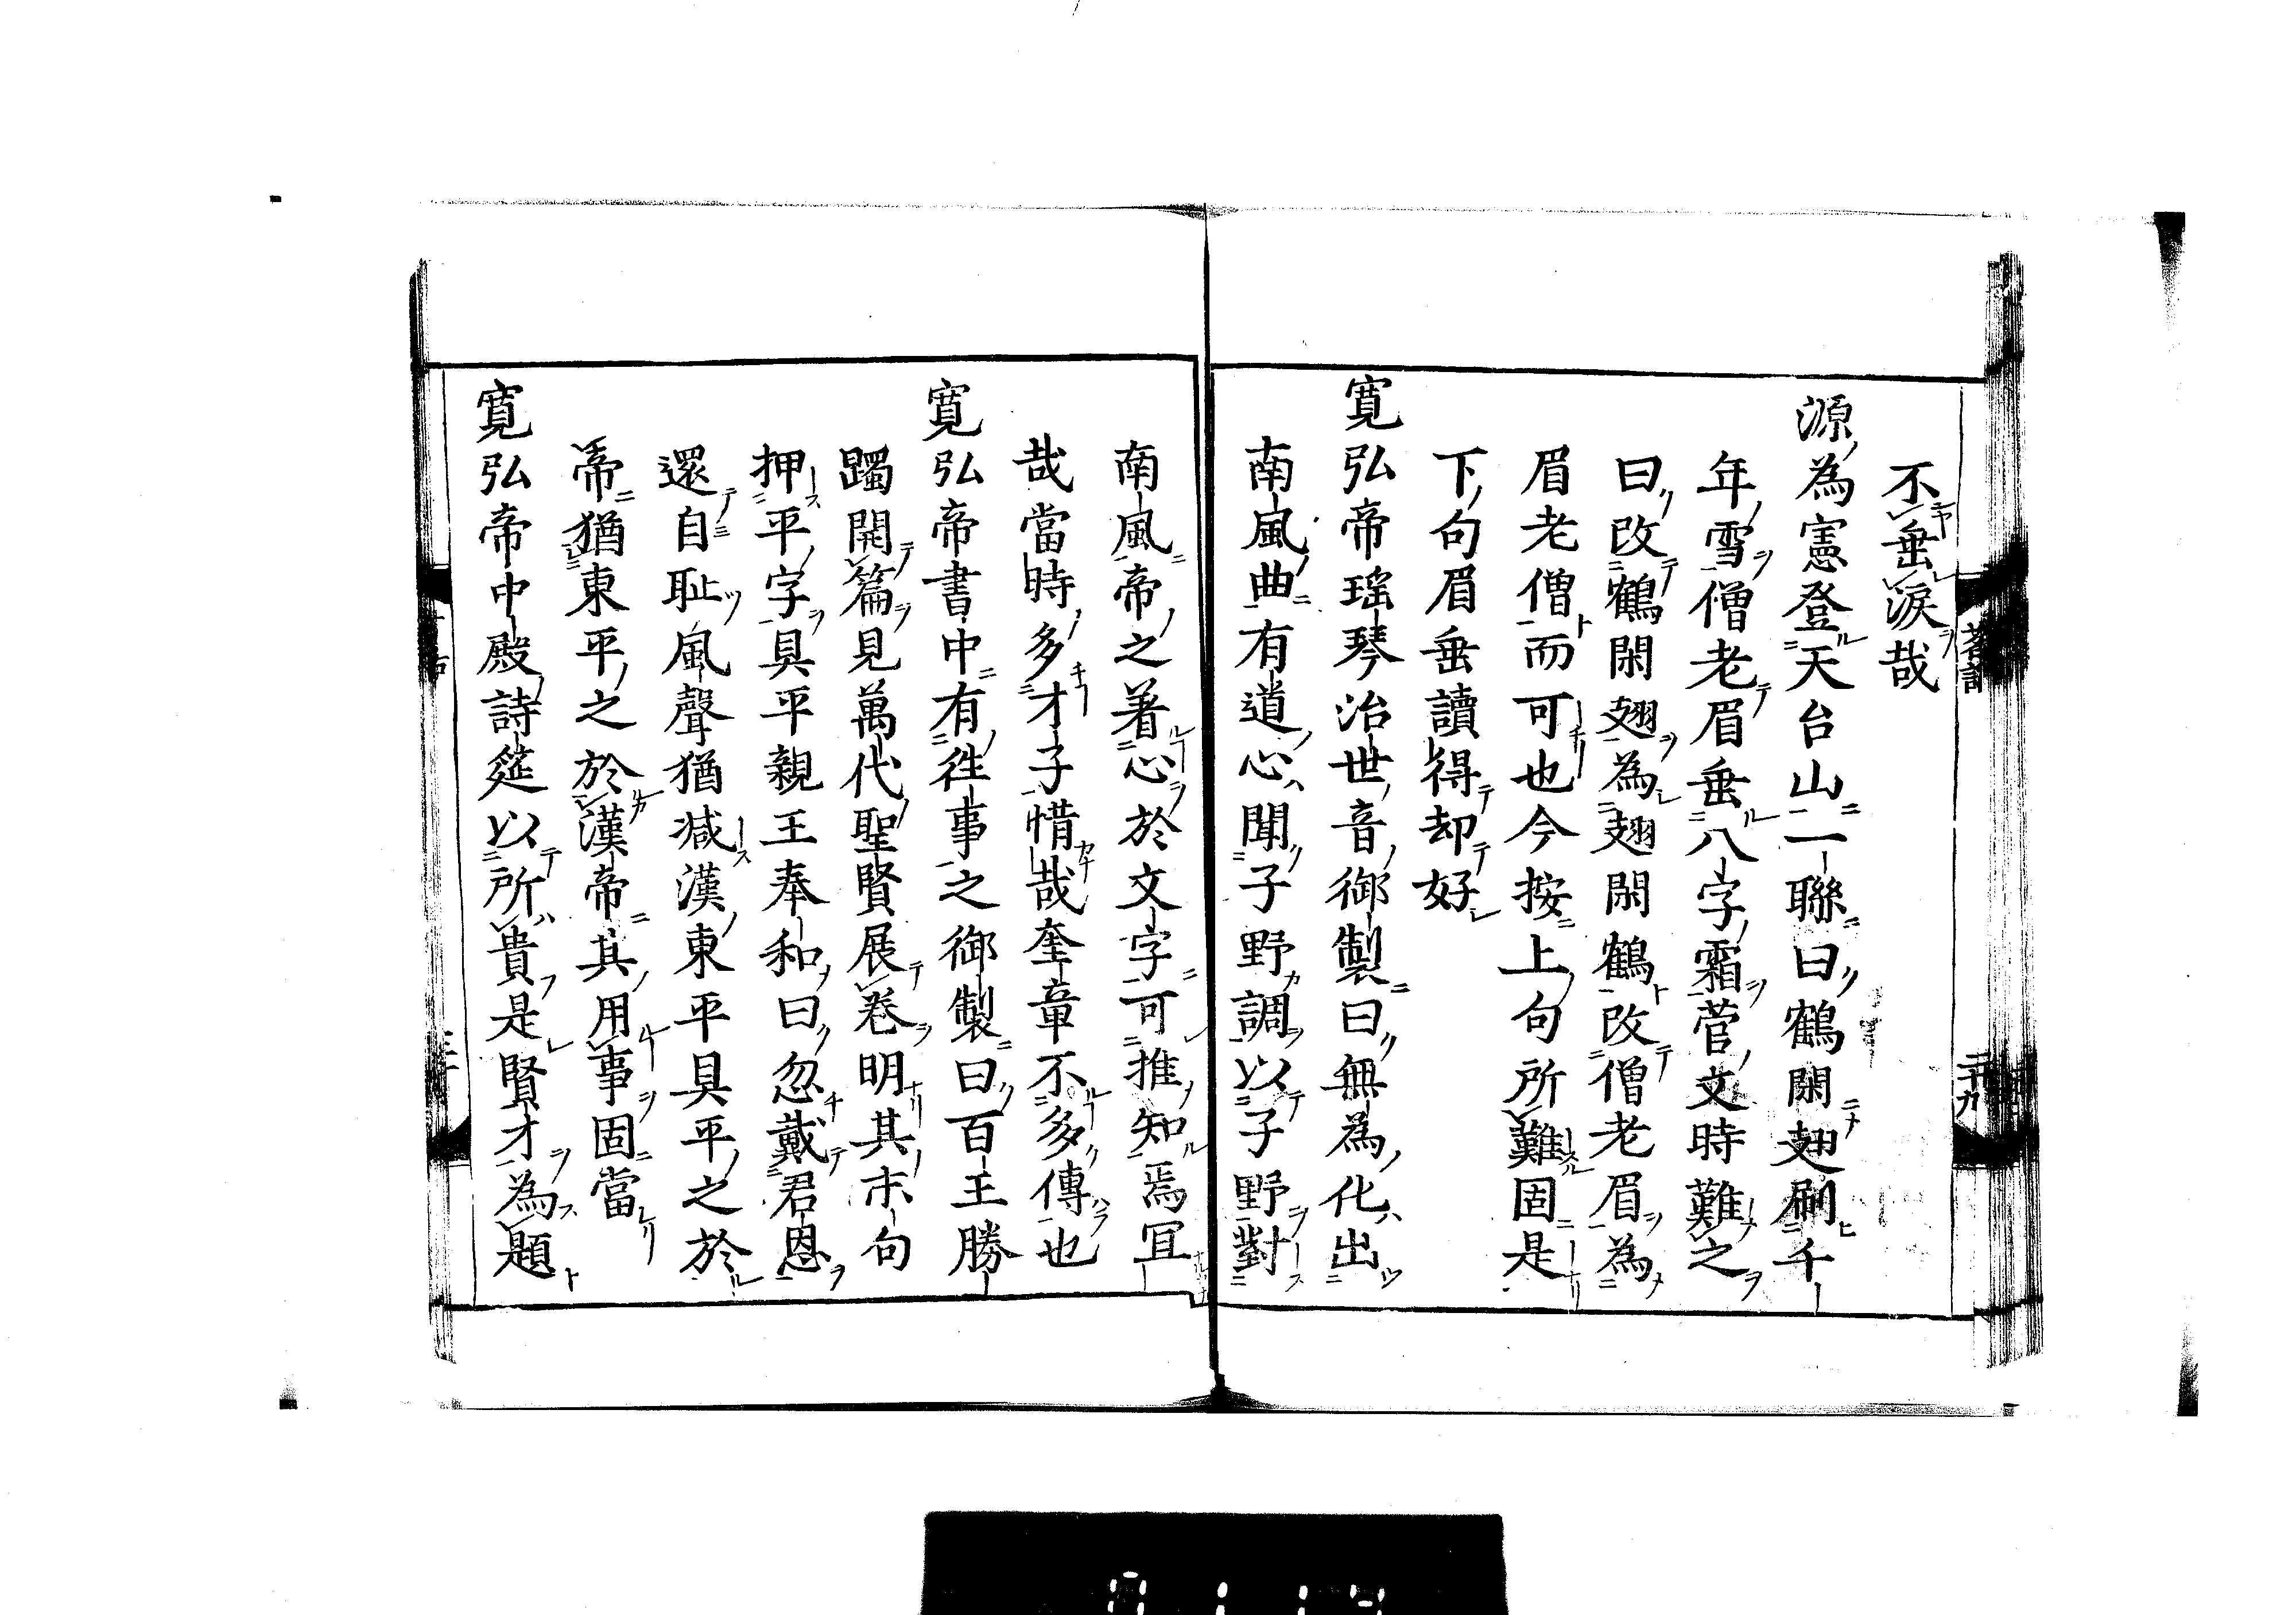 不垂淚哉
源為憲登天台山一聯曰鶴閑翅刷千
年雪僧老眉垂八字霜菅文時難之
曰改鶴閑翅為翅閑鶴改僧老眉為
眉老僧而可也今按上句所難固是
下句眉垂讀得却好
寛弘帝瑶琴治世音御製曰無為化出
南風曲有道心聞子野調以子野對
南風帝之著心於文字可推知焉冝
哉當時多才子惜哉奎章不多傳也
寛弘帝書中有徃事之御製曰百王勝
躅開篇見萬代聖賢展卷明其末句
押平字具平親王奉和曰忽戴君恩
還自耻風聲猶减漢東平具平之於
帝猶東平之於漢帝其用事固當
寛弘帝中殿詩筵以所貴是賢才為題
二十九